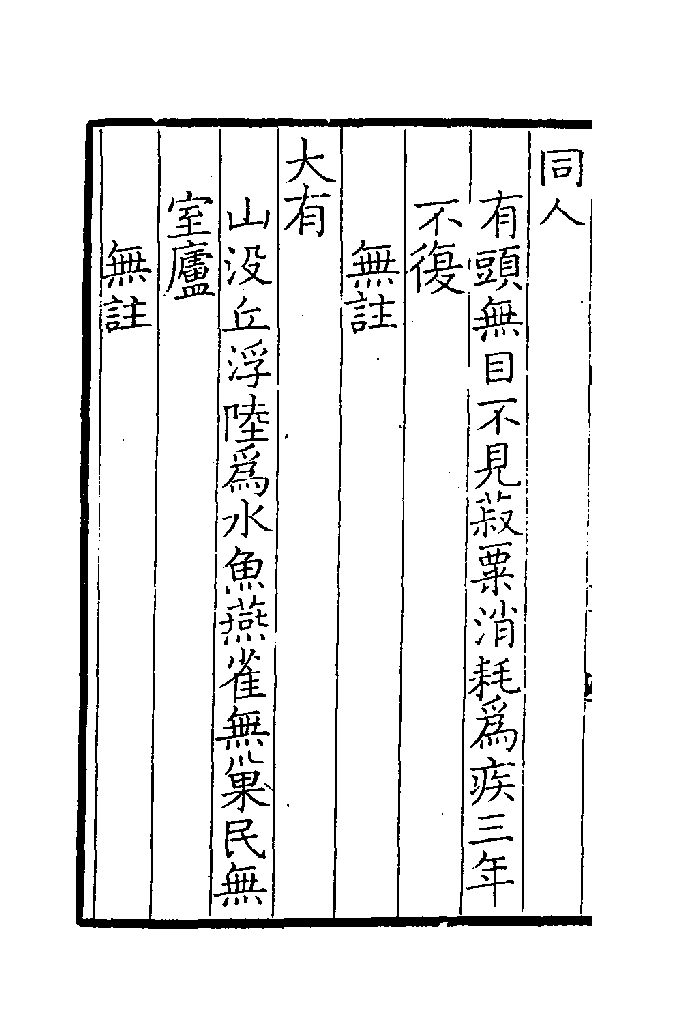 同人
有頭無目不見菽粟消耗爲疾三年
不復
無註
大有
山没丘浮陸爲水魚燕雀無巢民無
室廬
無註